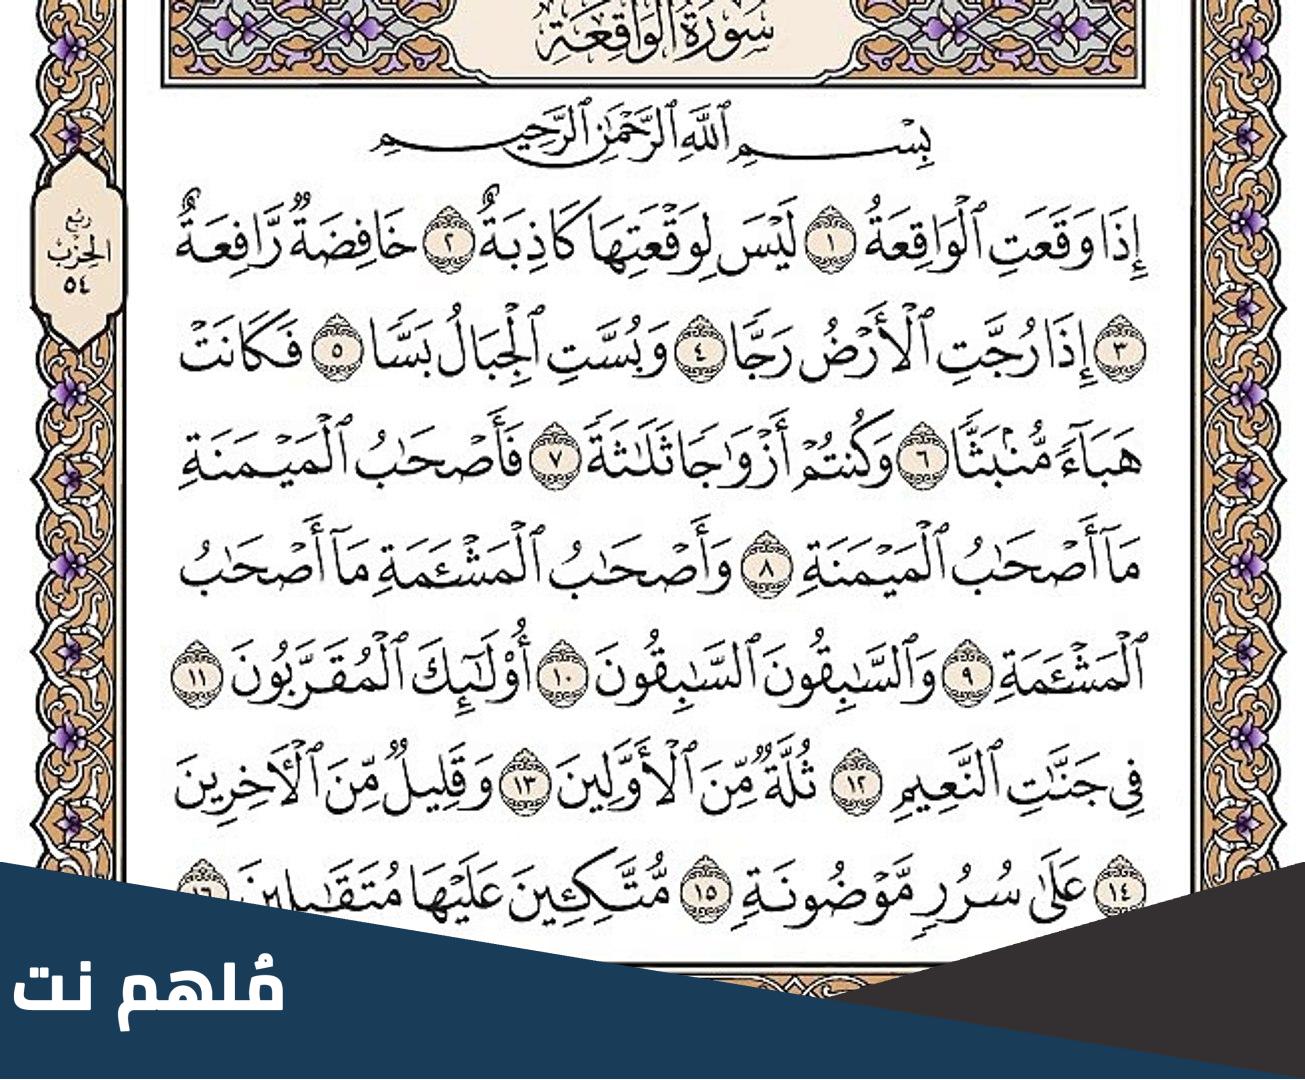 سُورَةُ الوَاقِعَةِ
بِسْمِ ٱللَّهِ ٱلرَّحْمَٰنِ ٱلرَّحِيمِ
إِذَا وَقَعَتِ ٱلْوَاقِعَةُ ١ لَيْسَ لِوَقْعَتِهَا كَاذِبَةٌ ٢ خَافِضَةٌ رَّافِعَةٌ
ربع
الحزب
٥٤
٣ إِذَا رُجَّتِ ٱلْأَرْضُ رَجًّا ٤ وَبُسَّتِ ٱلْجِبَالُ بَسًّا ٥ فَكَانَتْ
هَبَآءً مُّنۢبَثًّا ٦ وَكُنتُمْ أَزْوَٰجًا ثَلَٰثَةً ٧ فَأَصْحَٰبُ ٱلْمَيْمَنَةِ
مَآ أَصْحَٰبُ ٱلْمَيْمَنَةِ ٨ وَأَصْحَٰبُ ٱلْمَشْـَٔمَةِ مَآ أَصْحَٰبُ
ٱلْمَشْـَٔمَةِ ٩ وَٱلسَّٰبِقُونَ ٱلسَّٰبِقُونَ ١٠ أُو۟لَٰٓئِكَ ٱلْمُقَرَّبُونَ ١١
فِى جَنَّٰتِ ٱلنَّعِيمِ ١٢ ثُلَّةٌ مِّنَ ٱلْأَوَّلِينَ ١٣ وَقَلِيلٌ مِّنَ ٱلْـَٔاخِرِينَ
١٤ عَلَىٰ سُرُرٍ مَّوْضُونَةٍ ١٥ مُّتَّكِـِٔينَ عَلَيْهَا مُتَقَٰبِلِينَ ١٦
مُلهم نت